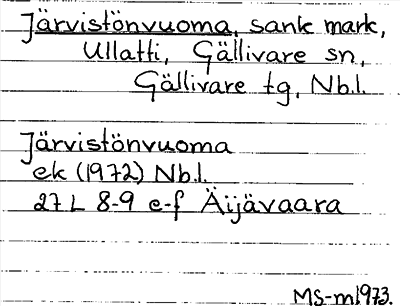 Järvistönvuoma, sank mark,
Ullatti, Gällivare sn,
Gällivare tg, Nb.l.
Järvistönvuoma
ek (1972) Nb.l.
27 L 8-9 e-f Äijävaara
MS-m1973.